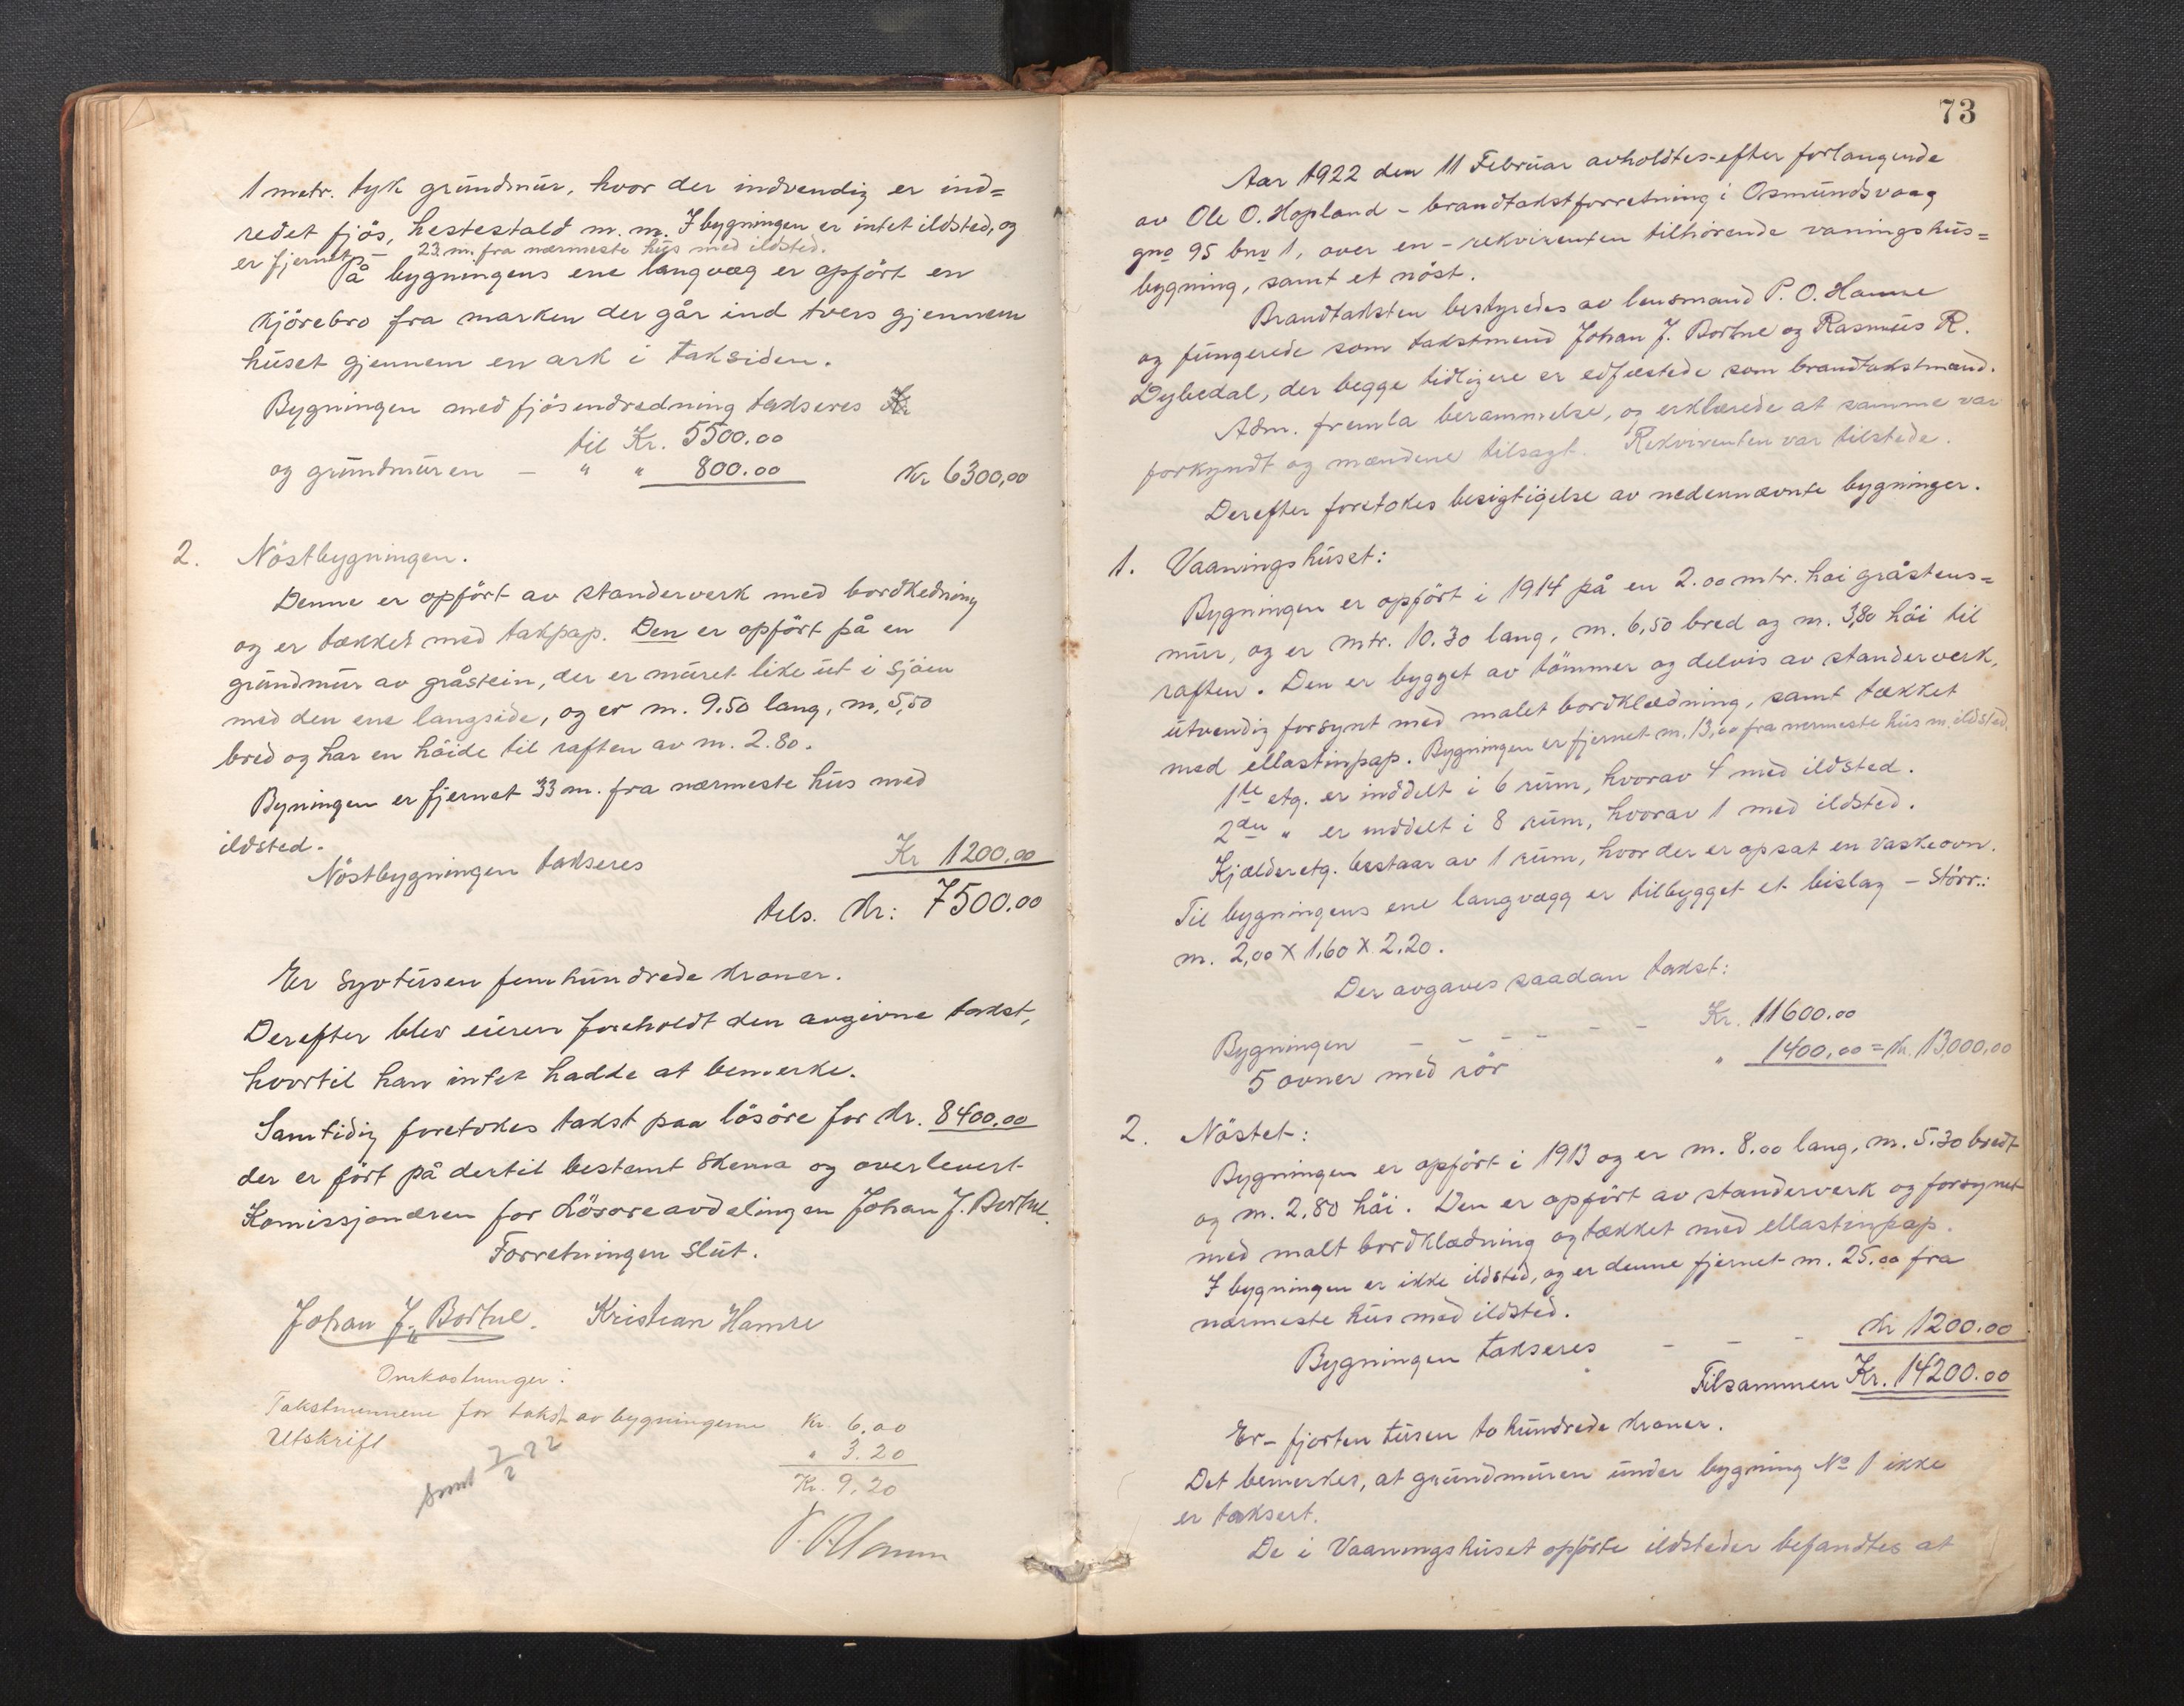 1 metr. tyk grundmur, hvor der indvendig er ind=
redet fjös, hestestald m. m. I bygningen er intet ildsted, og
er fjernet – 23. m. fra nærmeste hus med ildsted.
På bygningens ene langvæg er opfört en
kjörebro fra marken der går ind tvers gjennem
huset gjennem en ark i taksiden.
Bygningen med fjösendredning takseres
til Kr. 5500.00
og grundmuren – " " 800.00 Kr 6300,00
2. Nöstbygningen.
Denne er opfört av standerverk med bordkledning
og er tækket med takpap. Den er opfört på en
grundmur av gråstein, der er muret like ut i sjöen
med den ene langside, og er m. 9.50 lang, m. 5,50
bred og har en höide til raften av m. 2.80.
Byningen er fjernet 33 m. fra nærmeste hus med
ildsted.
Nöstbygningen takseres Kr 1200.00
tils. Kr: 7500.00
Er syvtusen femhundrede kroner.
Derefter blev eieren foreholdt den avgivne takst,
hvortil han intet hadde at bemerke.
Samtidig foretokes takst paa lösöre for Kr. 8400.00
der er fört på dertil bestemt skema og overlevert
Komissjonæren for Lösoreavdelingen Johan J. Bortne.
Forretningen slut.
Johan J. Bortne. Kristian Hamre
Omkostninger:
Takstmennene for takst av bygningerne Kr. 6.00
Utskrift " 3.20
Kr. 9.20
sendt 7/2 22
P. O. Hamre
73
Aar 1922 den 11 Februar avholdtes efter forlangende
av Ole O. Hopland – brandtakstforretning i Osmundsvaag
gno 95 bno 1, over en – rekvirenten tilhörende vaningshus=
bygning, samt et nöst.
Brandtaksten bestyredes av lensmand P. O. Hamre
og fungerede som takstmend Johan J. Bortne og Rasmus R.
Dybedal, der begge tidligere er edfæstede som brandtakstmænd.
Adm. fremla berammelse, og erklærede at samme var
forkyndt og mændene tilsagt. Rekvirenten var tilstede.
Derefter foretokes besigtigelse av nedennævnte bygninger.
1. Vaaningshuset:
Bygningen er opfört i 1914 på en 2.00 mtr. höi gråstens=
mur, og er mtr. 10.30 lang, m. 6,50 bred og m. 3,80 höi til
raften. Den er bygget av tömmer og delvis av standerverk,
utvendig forsynt med malet bordklædning, samt tækket
med ellastinpap. Bygningen er fjernet m. 13,00 fra nermeste hus m. ildsted.
1ste etg. er inddelt i 6 rum, hvorav 4 med ildsted.
2den " er inddelt i 8 rum, hvorav 1 med ildsted.
Kjælderetg. bestaar av 1 rum, hvor der er opsat en vaskeovn.
Til bygningens ene langvægg er tilbygget et bislag – störr.:
m. 2,00 x 1,60 x 2.20.
Der avgaves saadan takst:
Bygningen – – – – – Kr. 11600.00
5 ovner med rör " 1400,00 = Kr. 13,000,00
2. Nöstet:
Bygningen er opfört i 1913 og er m. 8.00 lang, m. 5.30 bredt
og m. 2,80 höi. Den er opfört av standerverk og forsynet
med malt bordklædning og tækket med ellastinpap.
I bygningen er ikke ildsted, og er denne fjernet m. 25.00 fra
nærmeste hus med ildsted.
Bygningen takseres – – Kr 1200.00
Tilsammen Kr. 14200.00
Er – fjorten tusen to hundrede kroner.
Det bemerkes, at grundmuren under bygning No 1 ikke
er taksert.
De i Vaaningshuset opförte ildsteder befandtes at